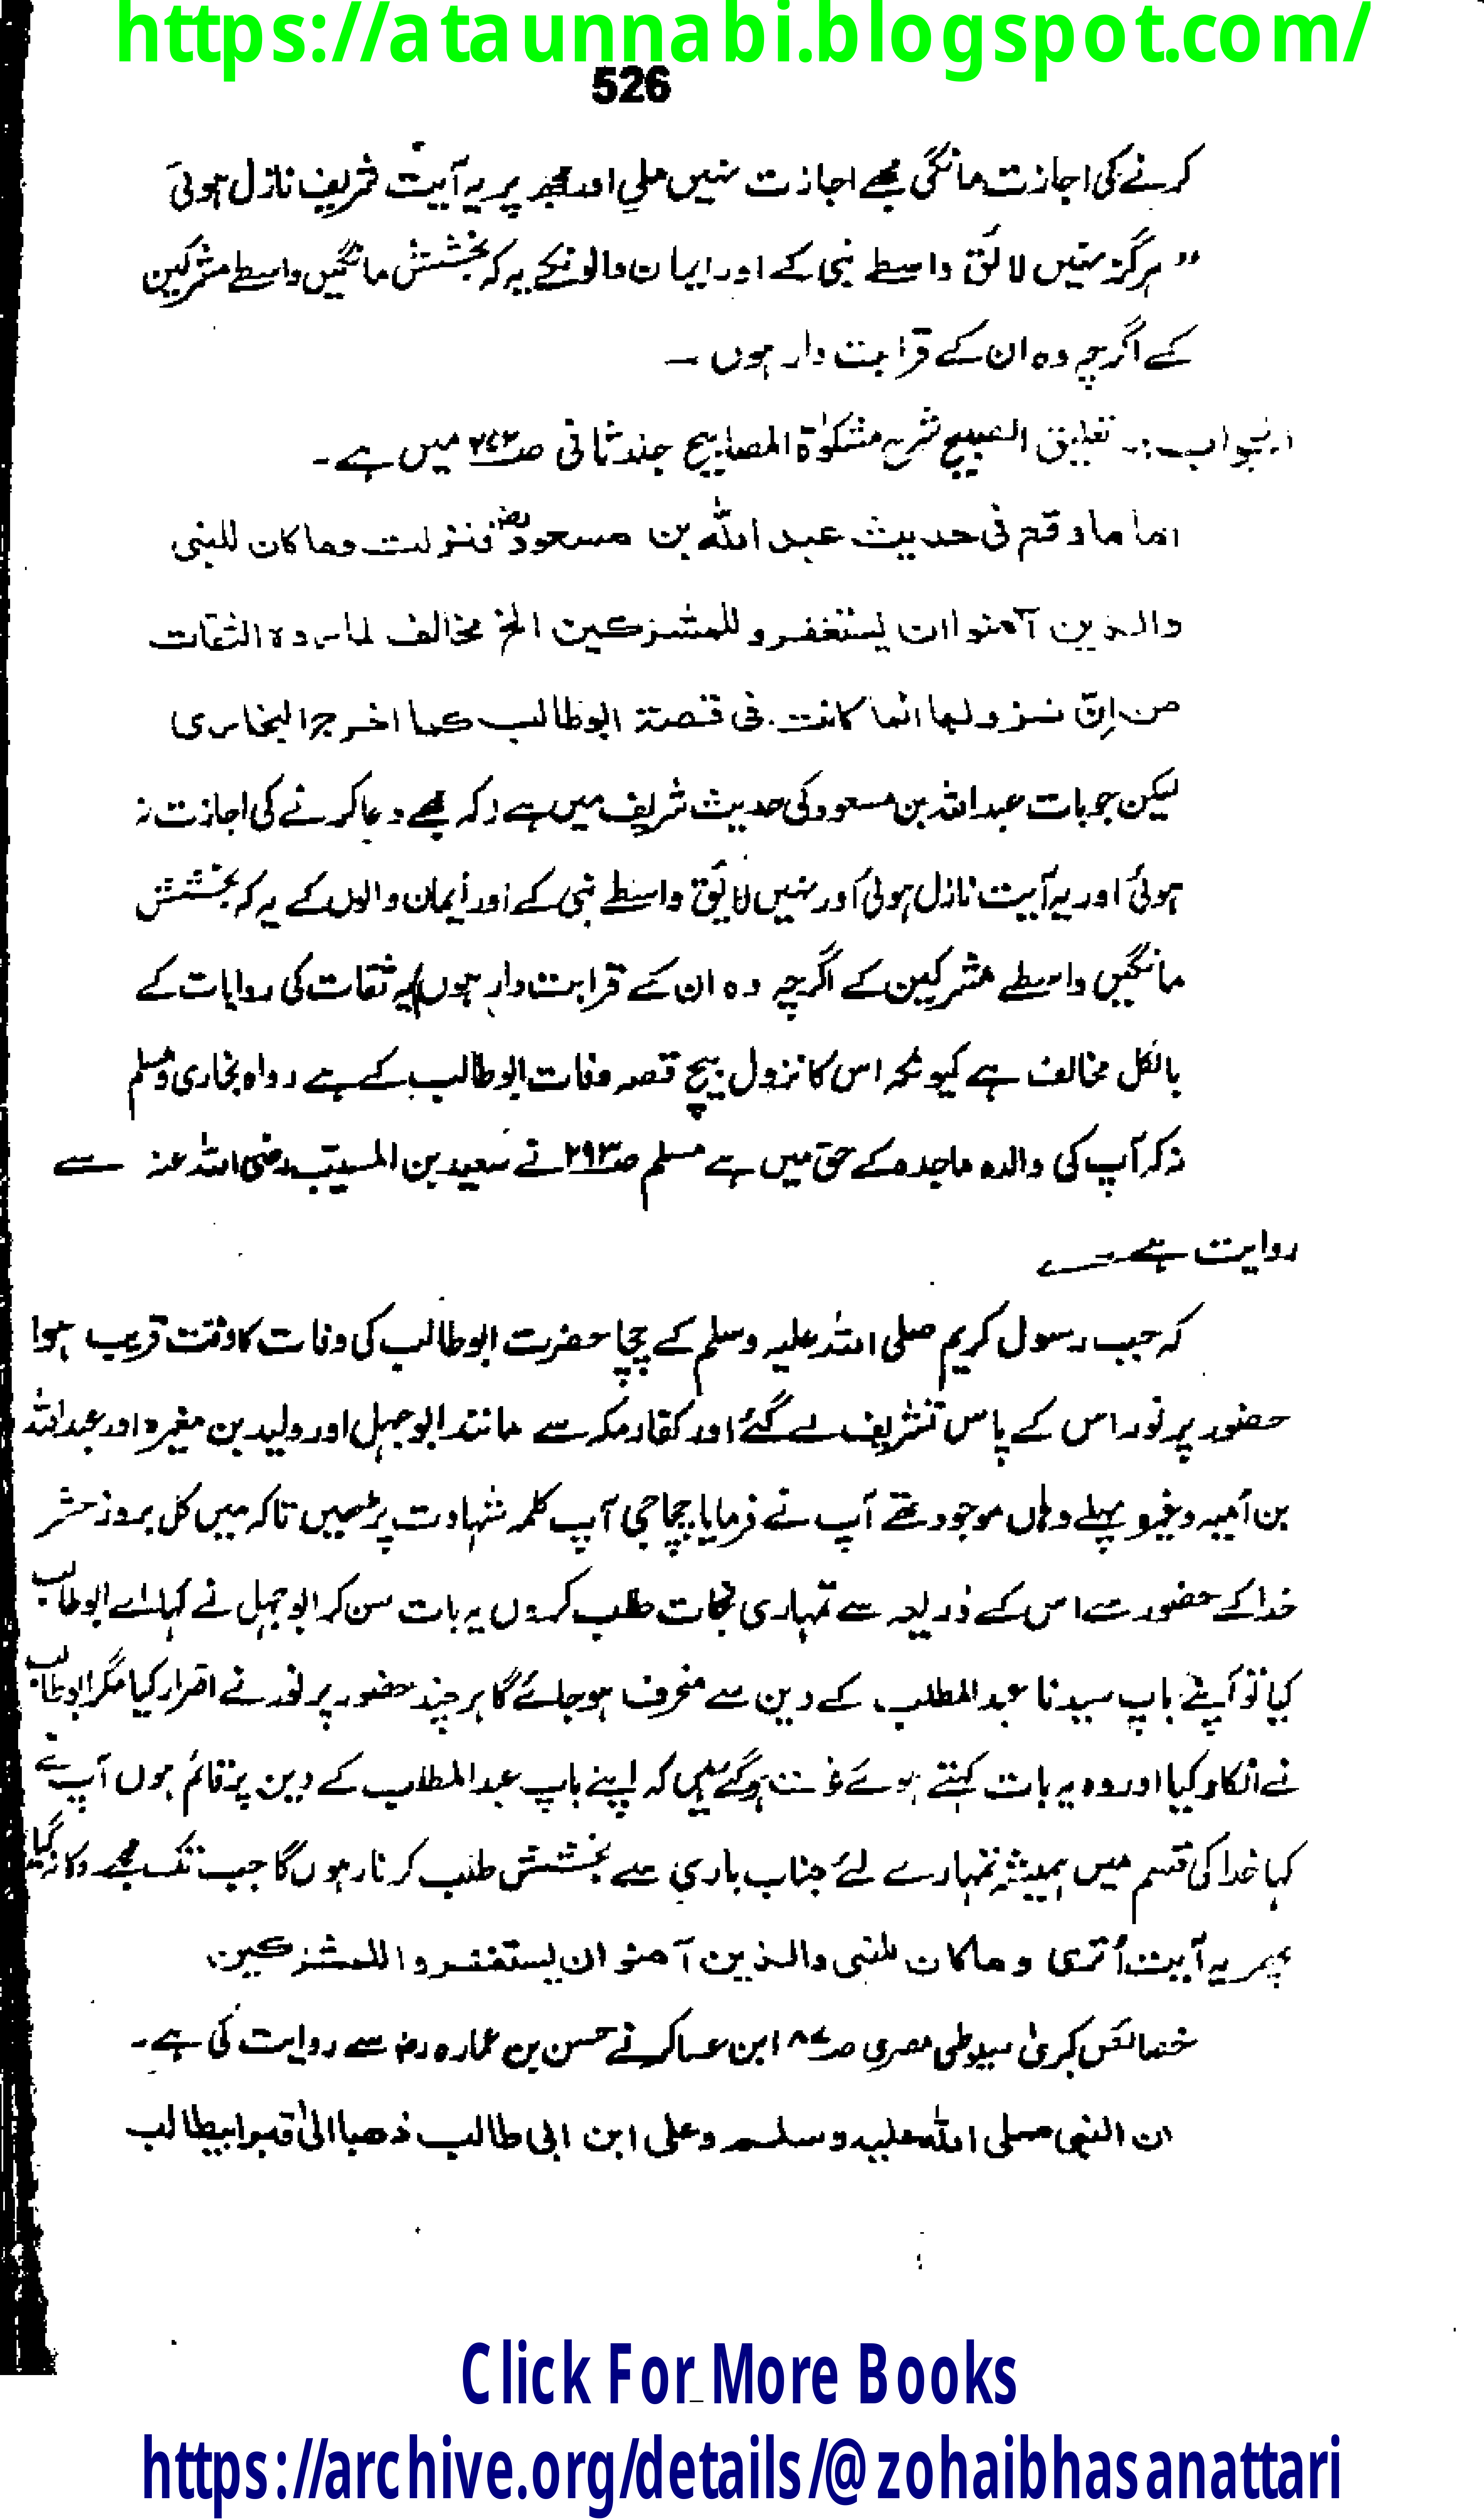 https://ataunnabi.blogspot.com/
526
کرنے کی اجازت مانگی مجھے اجازت نہیں ملی اور مجھ پر یہ آیت شریف نازل ہوئی
”ہرگز نہیں لائق واسطے نبی کے اور ایمان والوں کے یہ کہ بخشش مانگیں واسطے مشرکین
کے اگرچہ وہ ان کے قرابت دار ہوں ۔
الجواب :۔ تعلیق الصبیح شرح مشکوٰۃ المصابیح جلد ثانی صـ میں ہے ۔
اما ما وقع فی حدیث عبد اللہ بن مسعودؓ فنزلت وما کان للنبی
والذین آمنوا ان یستغفرو للمشرکین الخ مخالف لماروہ الثقات
من انّ نزولہا انما کانت فی قصۃ ابوطالب کما اخرجہ البخاری
لیکن جو بات عبداللہ بن مسعود کی حدیث شریف میں ہے (کہ مجھے دعا کرنے کی اجازت نہ
ہوئی اور یہ آیت نازل ہوئی اور نہیں لائق واسطے نبی کے اور ایمان والوں کے یہ کہ بخشش
مانگیں واسطے مشرکین کے اگرچہ وہ ان کے قرابت دار ہوں) یہ ثقات کی روایات کے
بالکل مخالف ہے کیونکہ اس کا نزول بیچ قصہ وفات ابوطالب کے ہے رواہ بخاری و مسلم
نہ کہ آپ کی والدہ ماجدہ کے حق میں ہے مسلم صـ۲۹۳ نے سعید بن المسیّب رضی اللہ عنہ سے
روایت ہے
کہ جب رسول کریم صلی اللہ علیہ وسلم کے چچا حضرت ابوطالب کی وفات کا وقت قریب ہوا
حضور پر نور اس کے پاس تشریف لے گئے اور کفار مکہ سے مانند ابوجہل اور ولید بن مغیرہ اور عبداللہ
بن اُمیہ وغیرہ پہلے وہاں موجود تھے آپ نے فرمایا چچا جی آپ کلمہ شہادت پڑھیں تاکہ میں کل بروز حشر
خدا کے حضور سے اس کے ذریعہ سے تمہاری نجات طلب کروں یہ بات سن کر ابوجہل نے کہا اے ابوطالب
کیا تو اپنے باپ سیدنا عبدالمطلب کے دین سے منحرف ہو جائے گا ہر چند حضور پر نور نے اصرار کیا مگر ابوطالب
نے انکار کیا اور وہ یہ بات کہتے ہوئے فوت ہو گئے کہ اپنے باپ عبدالمطلب کے دین پر قائم ہوں آپ نے
کہا خدا کی قسم میں ہمیشہ تمہارے لئے جناب باری سے بخشش طلب کرتا رہوں گا جب تک مجھے روکا نہ گیا
پھر یہ آیت اُتری وماکان للنبی والذین آمنو ان یستغفروا للمشرکین
خصائص کبریٰ سیوطی مصری صـ۸۷ ابن عساکر نے حسن بن عمارہ رضؓ سے روایت کی ہے ۔
ان النبی صلی اللہ علیہ وسلم وعلی ابن ابی طالب ذھبا الیٰ قبر ابیطالب
Click For More Books
https://archive.org/details/@zohaibhasanattari